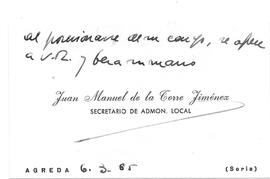 al posesionarse de su cargo, se ofrece
a V.R. y besa su mano
Juan Manuel de la Torre Jiménez
SECRETARIO DE ADMON. LOCAL
AGREDA 6.3.65 (Soria)